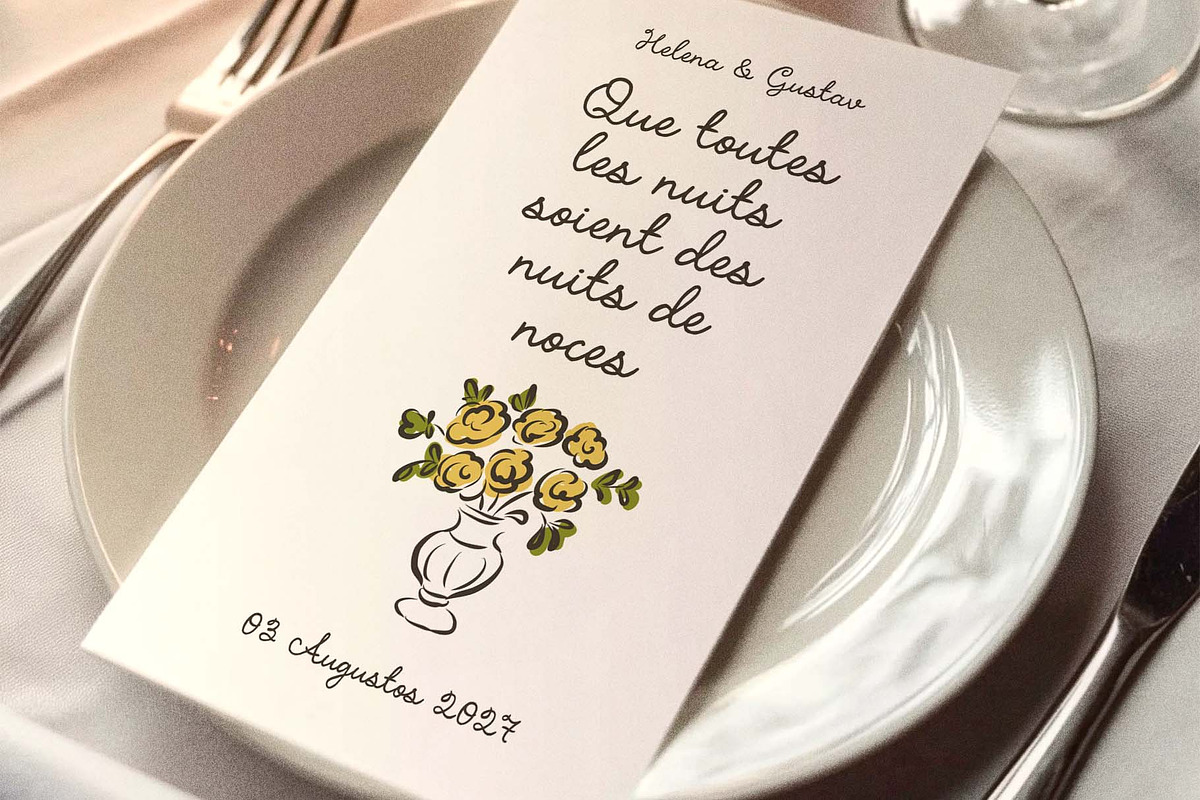 Helena & Gustav
Que toutes
les nuits
soient des
nuits de
noces
03 Augustos 2027